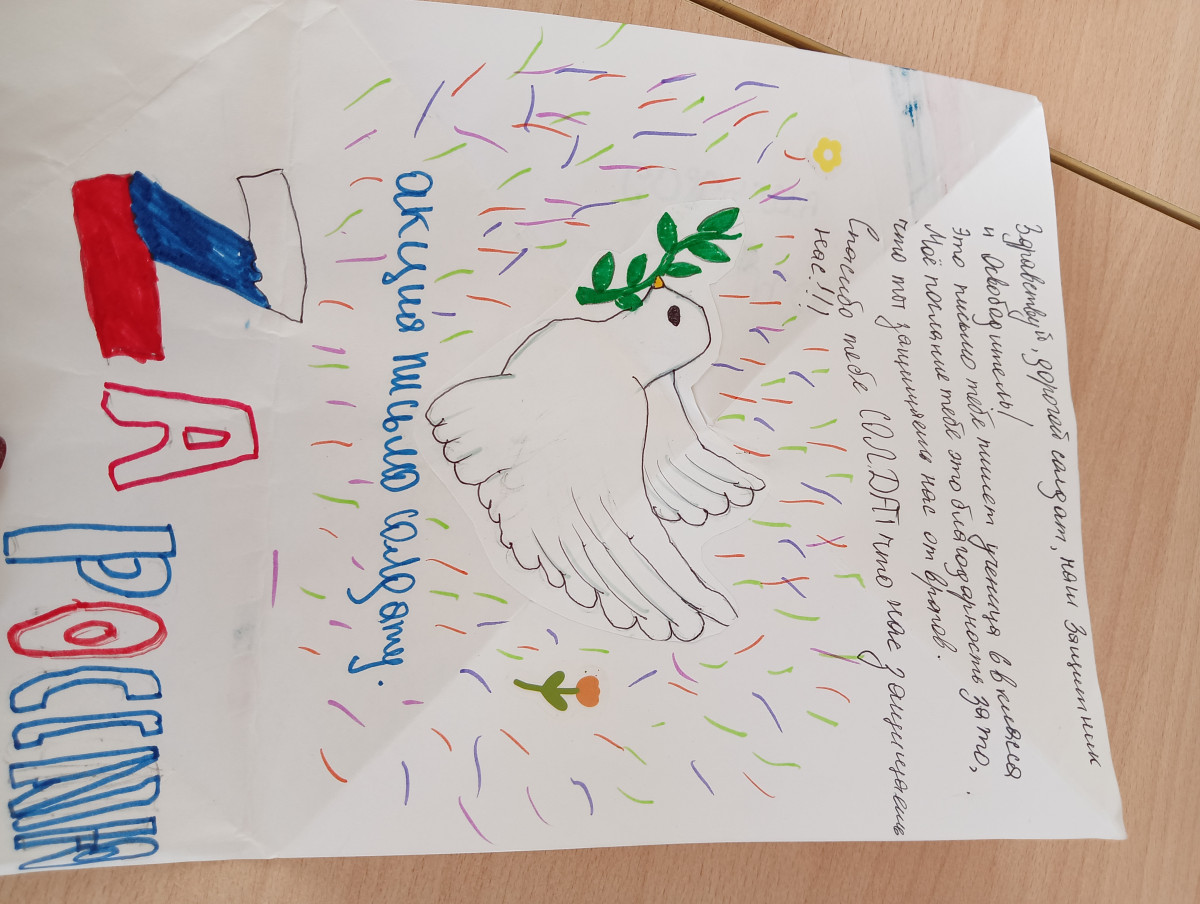 Здравствуй, дорогой салдат, наш Защитник
и Освободитель!
Это письмо тебе пишет ученица в в класса
Моё послание тебе это благодарность за то,
что ты защищаешь нас от врагов.
Спасибо тебе СОЛДАТ что нас защищаешь
нас!!!
акция письмо солдату.
ZA РОССИЯ